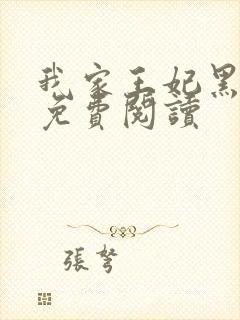 我家王妃黑
免費閱讀
張弩